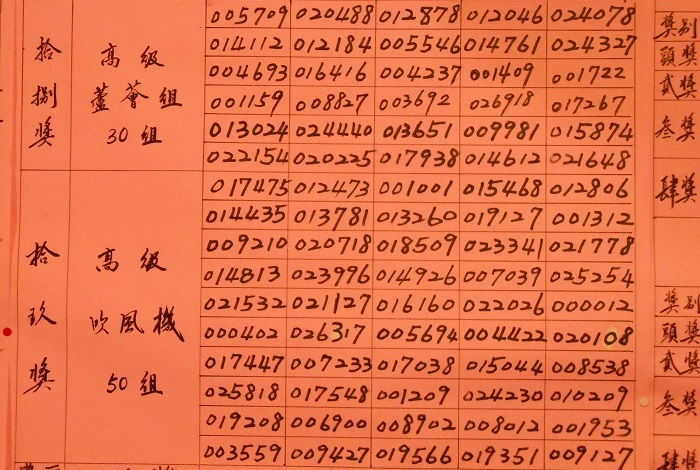 拾捌獎
高級
蘆薈組
30組
005709 020488 012878 012046 024078
014112 012184 005546 014761 024327
004693 016416 004237 001409 001722
001159 008827 003692 026918 017267
013024 024440 013651 009981 015874
022154 020225 017938 014612 021648
拾玖獎
高級
吹風機
50組
017475 012473 001001 015468 012806
014435 013781 013260 019127 001312
009210 020718 018509 023341 021778
014813 023996 014926 007039 025254
021532 021127 016160 022026 000012
000402 026317 005694 004422 020108
017447 007233 017038 015044 008538
025818 017548 001209 024230 010209
019208 006900 008902 008012 001953
003559 009427 019566 019351 009127
獎別
頭獎
貳獎
叁獎
肆獎
獎別
頭獎
貳獎
叁獎
肆獎